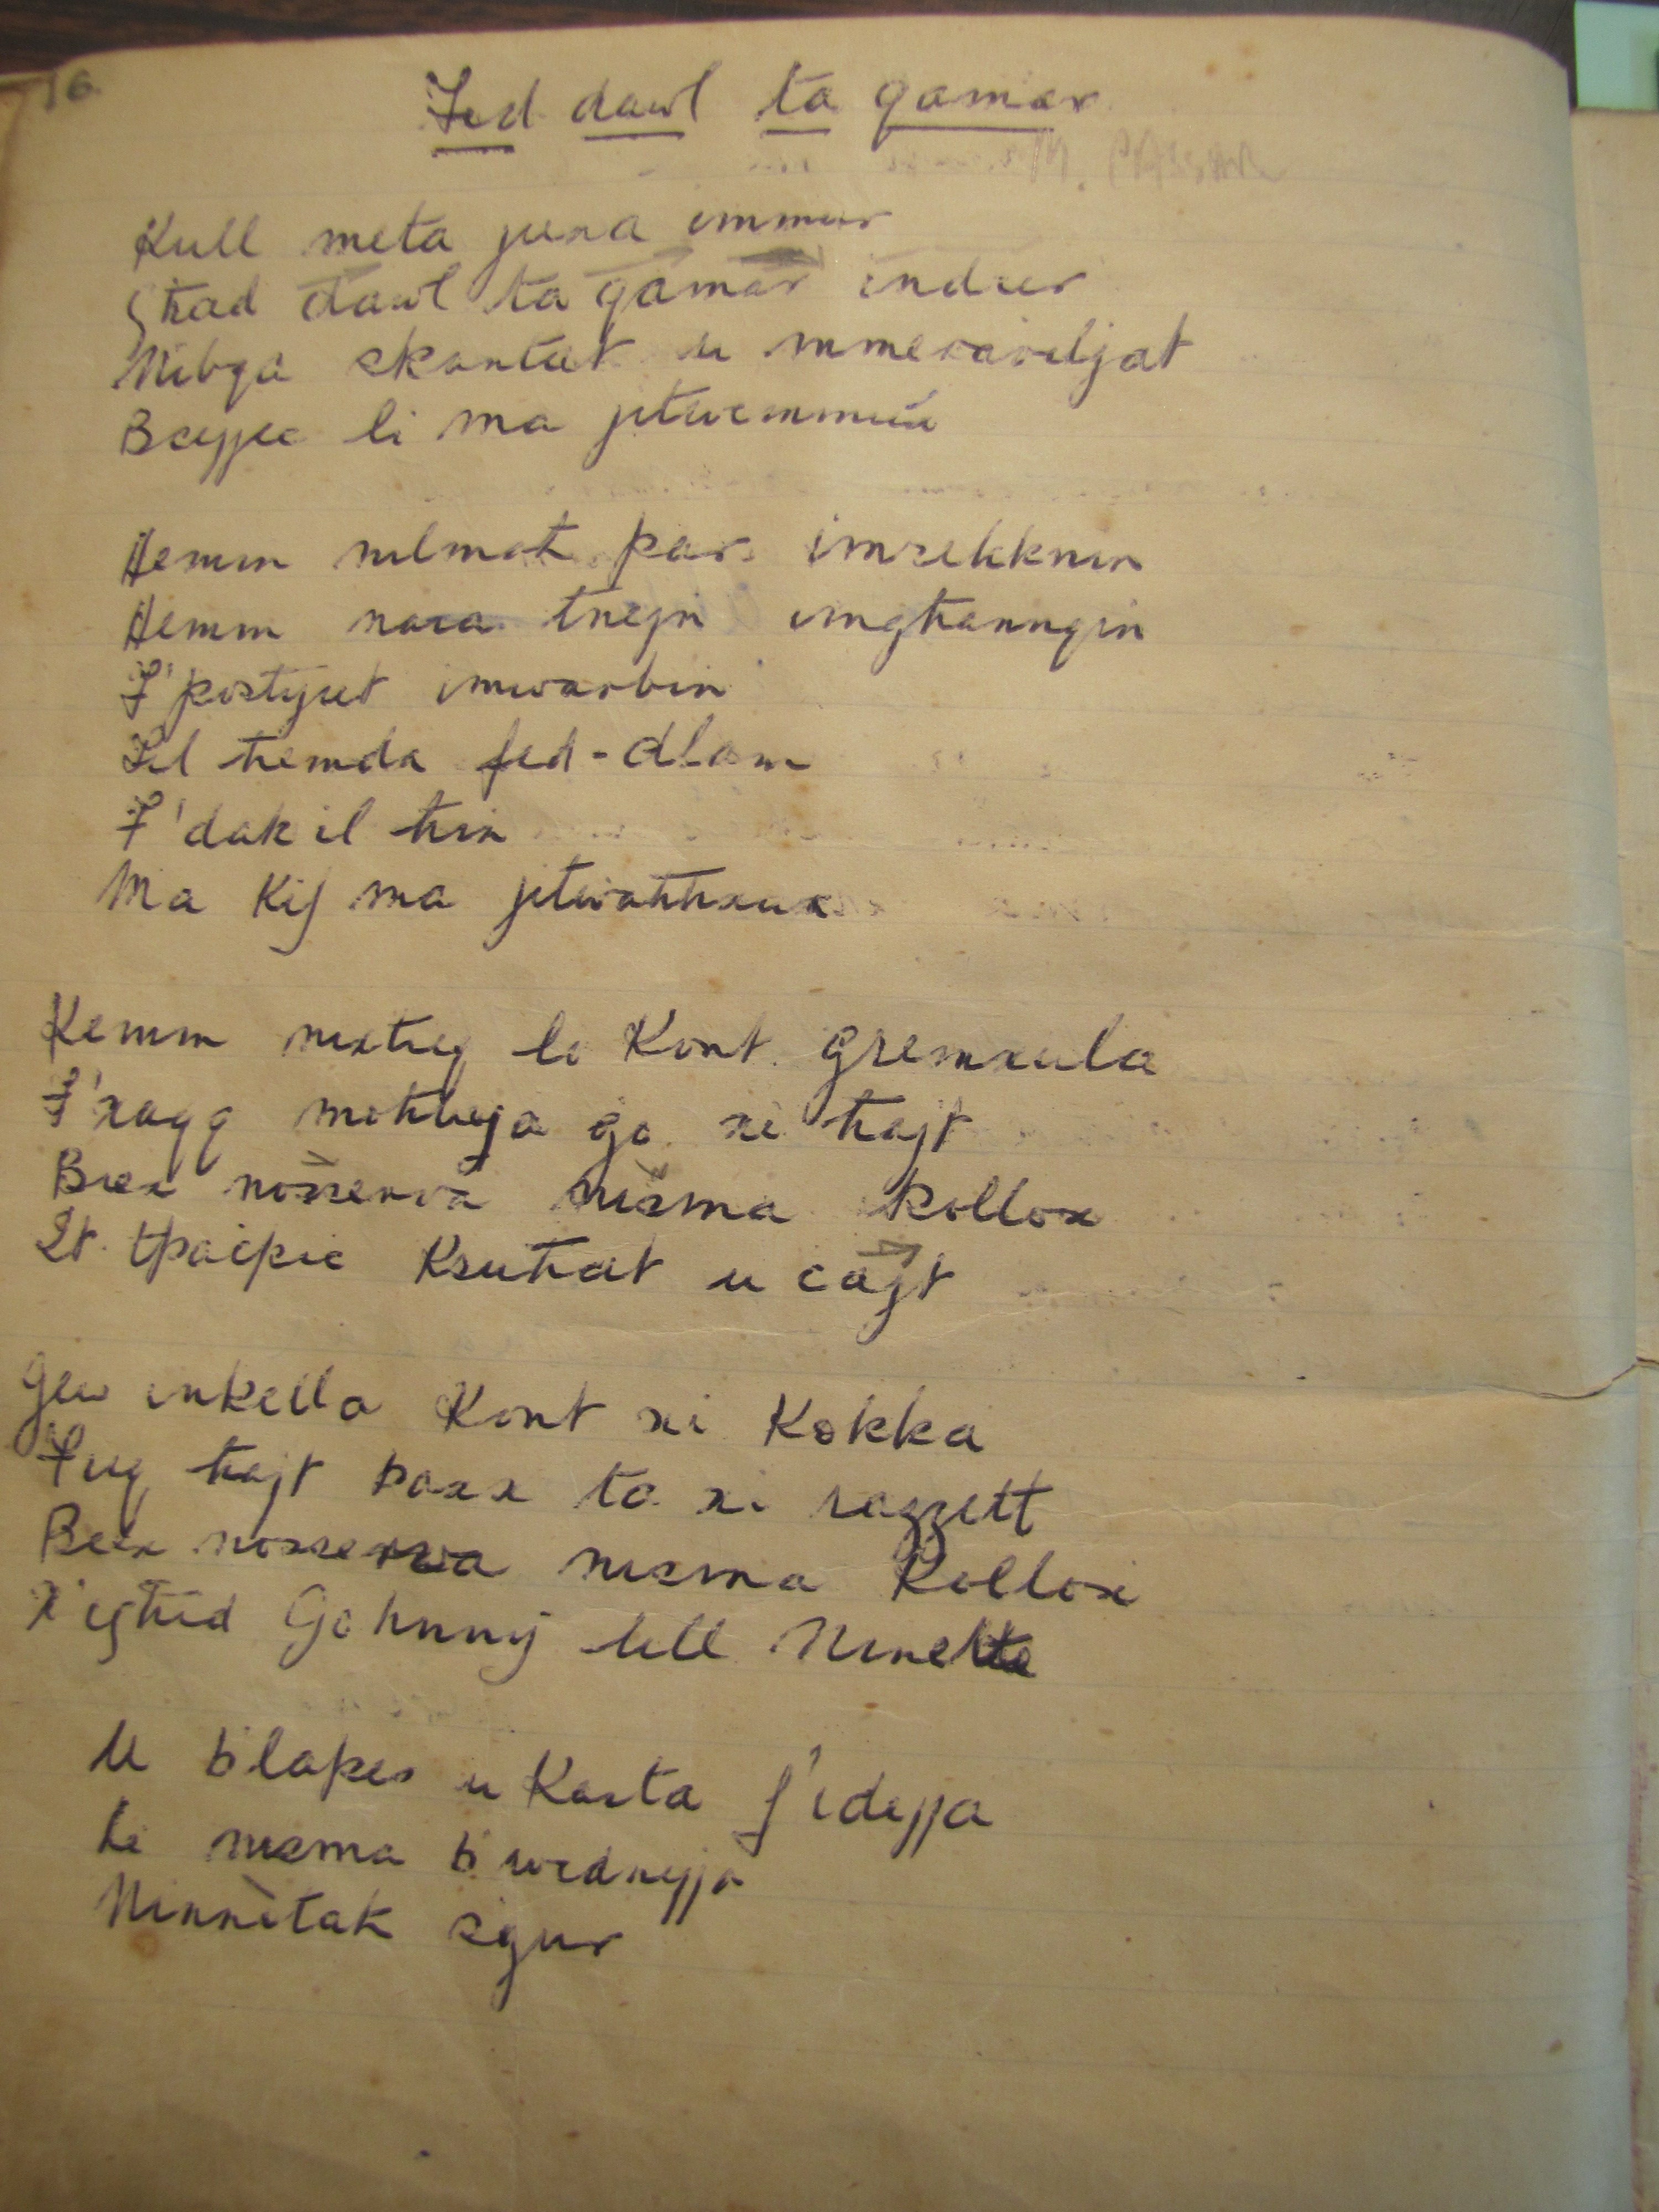 16.
Fid dawl ta qamar
M. CASSAR
Kull meta jiena immur
Ħad dawl ta qamar indur
Nibqa skantat u mmeraviljat
B'dejjec li ma jitwemmnu
Hemm nilmah par imżekknin
Hemm nara tnejn imgħannqin
F'postijiet imwarbin
Fil ħemda fed-dlam
F'dak il ħin
Ma kif ma jitwaħħxux
Kemm nixtieq li kont gremxula
F'xaqq moħbeja go xi ħajt
Biex nosserva nisma kollox
It tpacpic ksuħat u cajt
Jew inkella kont xi kokka
Fuq ħajt baxx ta xi razzett
Biex nosserva nisma kollox
X'igħid Gohnny lill Ninette
U b'lapes u karta f'idejja
Li nisma b'widnejja
Ninnotah żgur